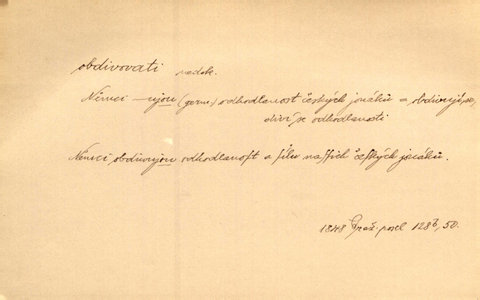 obdivovati nedok.
Němci -ujou (gerne) odhodlanost českých jonáků a obdivujíce,
diví se odhodlanosti
Němci obdivujou odhodlanosſt a ſílu naſſich čeſkých jonáků.
1848 Praž. posel 128b, 50.